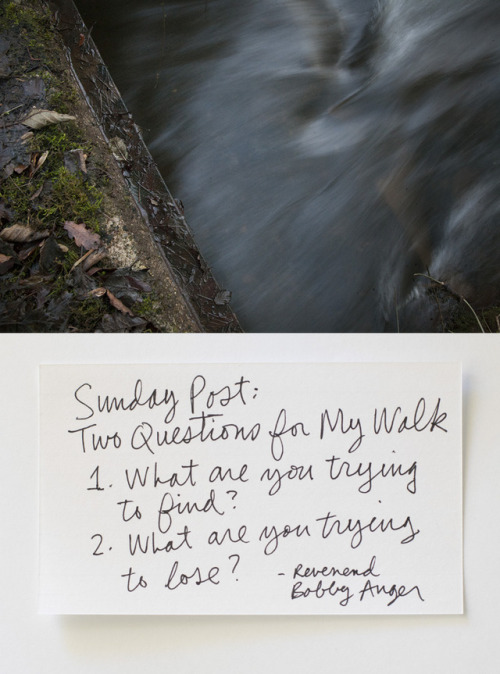 Sunday Post:
Two Questions for My Walk
1. What are you trying
to find?
2. What are you trying
to lose?
- Reverend
Bobby Anger